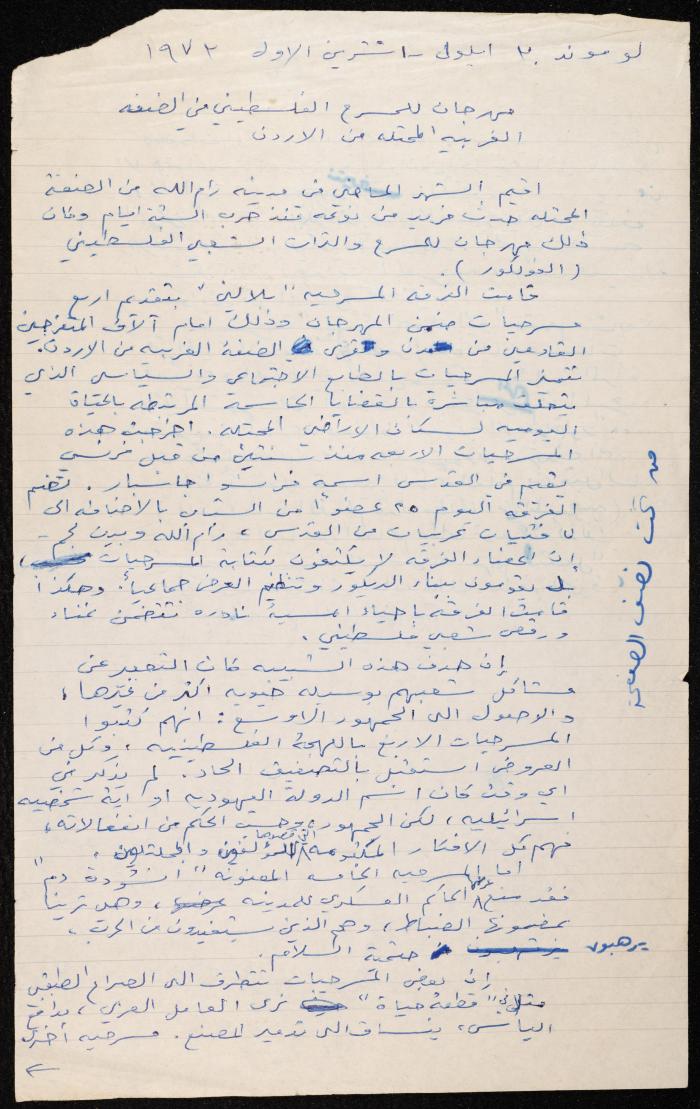 لوموند ٣٠ ايلول - ١ تشرين الاول ١٩٧٣
مهرجان للمسرح الفلسطيني في الضفه
الغربيه المحتله من الاردن
اقيم الشهر الماضي في مدينه رام الله من الضفة
المحتله حدث فريد من نوعه منذ حرب الستة ايام وكان
ذلك مهرجان للمسرح والتراث الشعبي الفلسطيني
(الفولكلور).
قامت الفرقه المسرحيه "بلالين" بتقديم اربع
مسرحيات ضمن المهرجان وذلك امام آلاف المتفرجين
القادمين من مدن وقرى الضفة الغربيه من الاردن.
تتميز المسرحيات بالطابع الاجتماعي والسياسي الذي
يتعلق مباشرة بالقضايا الحاسمة المرتبطه بالحياة
اليوميه لسكان الاراضي المحتله. اخرجت هذه
المسرحيات الاربعه منذ سنتين من قبل فرنسي
يقيم في القدس اسمه فرانسوا جاسبار. تضم
الفرقه اليوم ٢٥ عضوا من الشبان بالاضافه الى
٧ فتيات عربيات من القدس، رام الله وبيت لحم -
إن اعضاء الفرقه لا يكتفون بكتابة المسرحيات،
بل يقومون ببناء الديكور وتنظيم العرض جماعياً. وهكذا
قامت الفرقه باحياء امسية نادره تتضمن غناء
ورقص شعبي فلسطيني.
إن هدف هذه الشبيبه كان التعبير عن
مشاكل شعبهم بوسيله حيويه اكثر من غيرها،
والوصول الى الجمهور الاوسع: انهم كتبوا
المسرحيات الاربع باللهجة الفلسطينيه، وكل من
العروض استقبل بالتصفيق الحاد. لم يذكر في
اي وقت كان اسم الدولة اليهوديه او اية شخصيه
اسرائيليه، لكن الجمهور، وحسب الحكم من انفعالاته،
فهم كل الافكار المكتومه التي قصدها المؤلفين والممثلين.
اما المسرحيه الخامسه المعنونه "انشودة دم"
فقد منع عرضها الحاكم العسكري للمدينه، وهل ترينا
بمضمونها الضباط، وهم الذين يستفيدون من الحرب،
يرهبون حتمية السلام.
إن بعض المسرحيات تتطرف الى الصراع الطبقي
مثلا في "قطعة حياة" نرى العامل العربي، بدافع
اليأس، ينساق الى تدمير المصنع. مسرحيه أخرى
من تحت نصف الصفحة